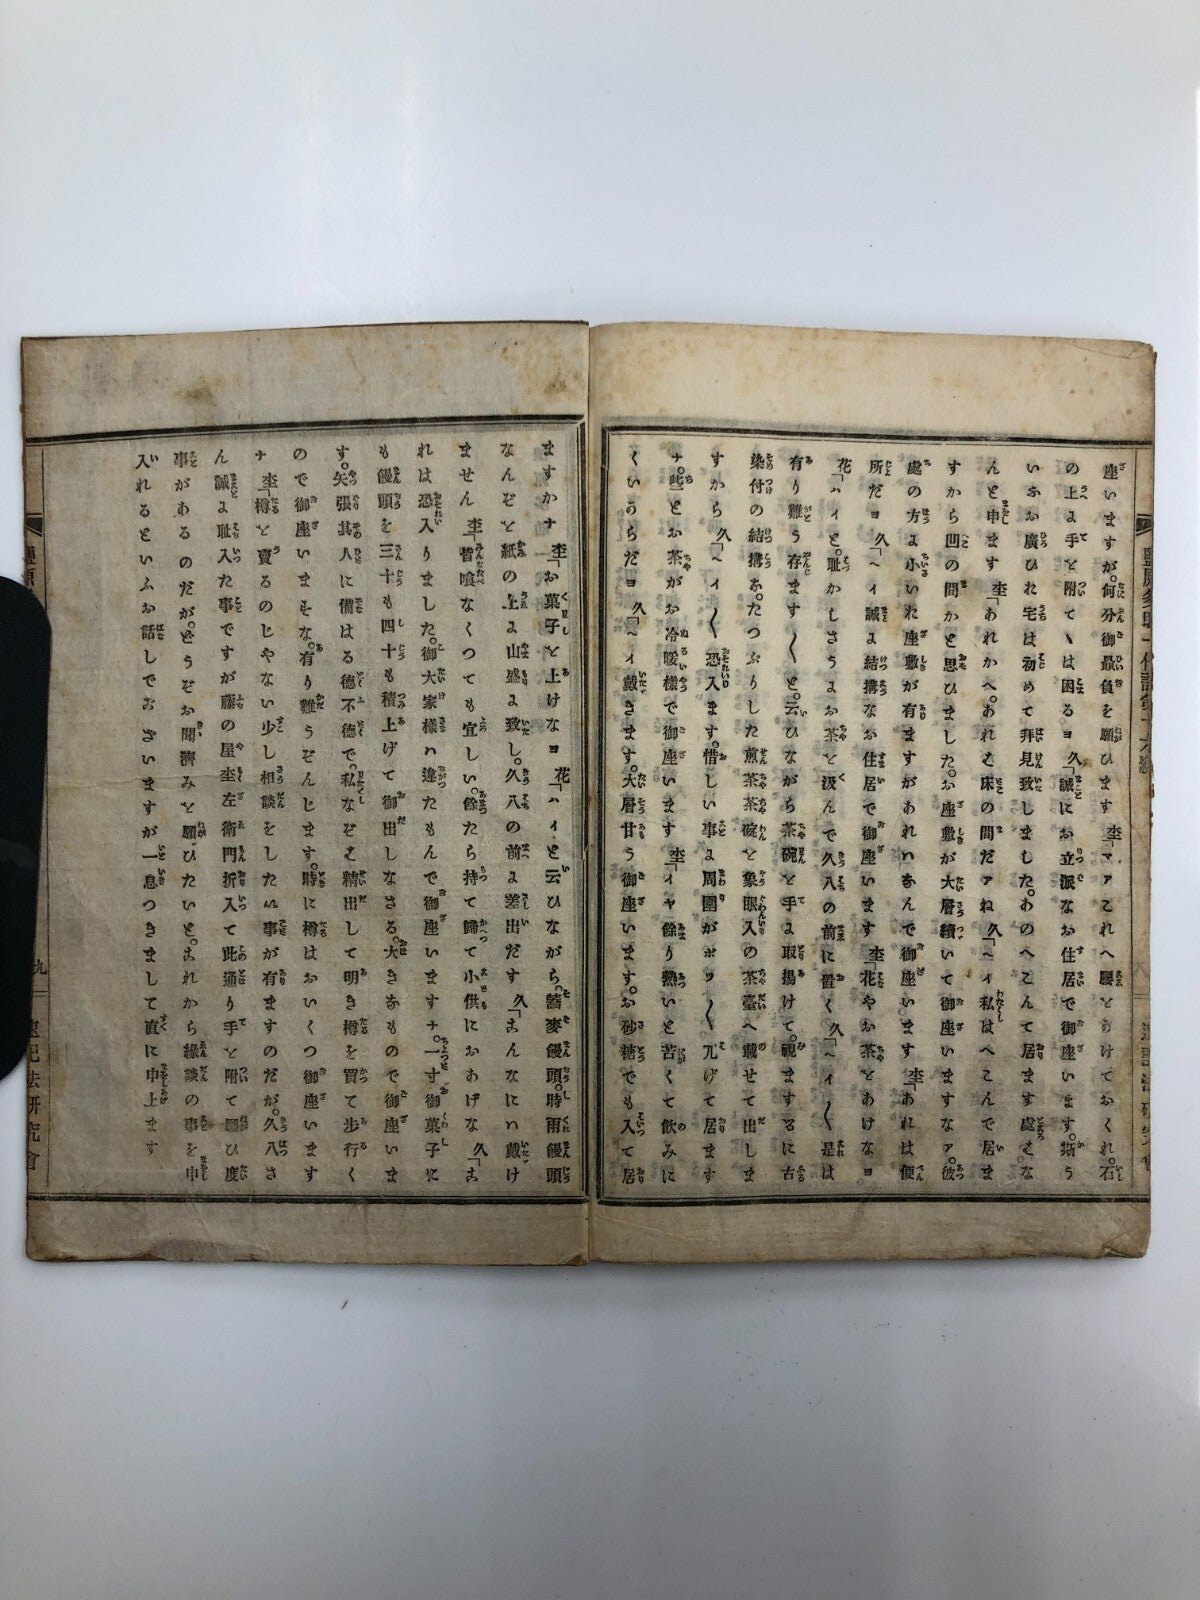 座いますが。何分御最負を願ひます 圶「マアこれへ腰とかけておくれ。石
の上よ手と附てヽは困るヨ 久「誠にお立派なお住居で御座います。斯う
いふお廣ひれ宅は初めて拜見致しました。わのへこんで居ます處そな
んと申ます 圶「あれかへ。あれそ床の間だアね 久「ヘイ私はへこんで居ま
すから凹の間かと思ひました。お座敷が大層續いて御座いますなァ。彼
處の方よ小いれ座敷が有ますがあれハなんで御座います 圶「あれは便
所だヨ 久「ヘイ誠よ結構なお住居で御座います 圶「花やお茶とあけなヨ
花「ハイと。耻かしさうよお茶と汲んで久八の前に置く 久「ヘイ〱是は
有り難う存ます〱と。云ひながら茶碗と手よ取揚けて。視まするに古
染付の結構な。たつぷりした煎茶茶碗と象眼入の茶臺へ載せて出しま
すから 久「ヘイ〱恐入ます。惜しい事よ周圍がポツ〱兀げて居ます
ナ。些とお茶がお冷暖樣で御座います 圶「イヤ餘り熱いと苦くて飮みに
くいうらだヨ 久「ヘイ戴きます。大層甘う御座います。お砂糖でも入て居
ますかナ 圶「お菓子と上けなヨ 花「ハイと云ひながら。蕎麥饅頭。時雨饅頭
なんぞと紙の上よ山盛よ致し。久八の前よ差出だす 久「こんなにハ戴け
ません 圶「皆喰なくつても宜しい。餘たら持て歸て小供におあげな 久「こ
れは恐入りました。御大家樣ハ違たもんで御座いますナ。一寸御菓子に
も饅頭を三十も四十も積上げて御出しなさる。大きなもので御座いま
す。矢張其人に備はる德不德で。私なぞそ精出して明き樽を買て歩行く
ので御座いまそな。有り難うぞんじます。時に樽はおいくつ御座います
ナ 圶「樽と賣るのじやない少し相談をしたい事が有ますのだが。久八さ
ん誠よ耻入た事ですが藤の屋圶左衛門折入て此通り手と附て願ひ度
事があるのだが。どうぞお聞濟みと願ひたいと。これから縁談の事を申
入れるといふお話しでございますが一息つきまして直に申上ます
九